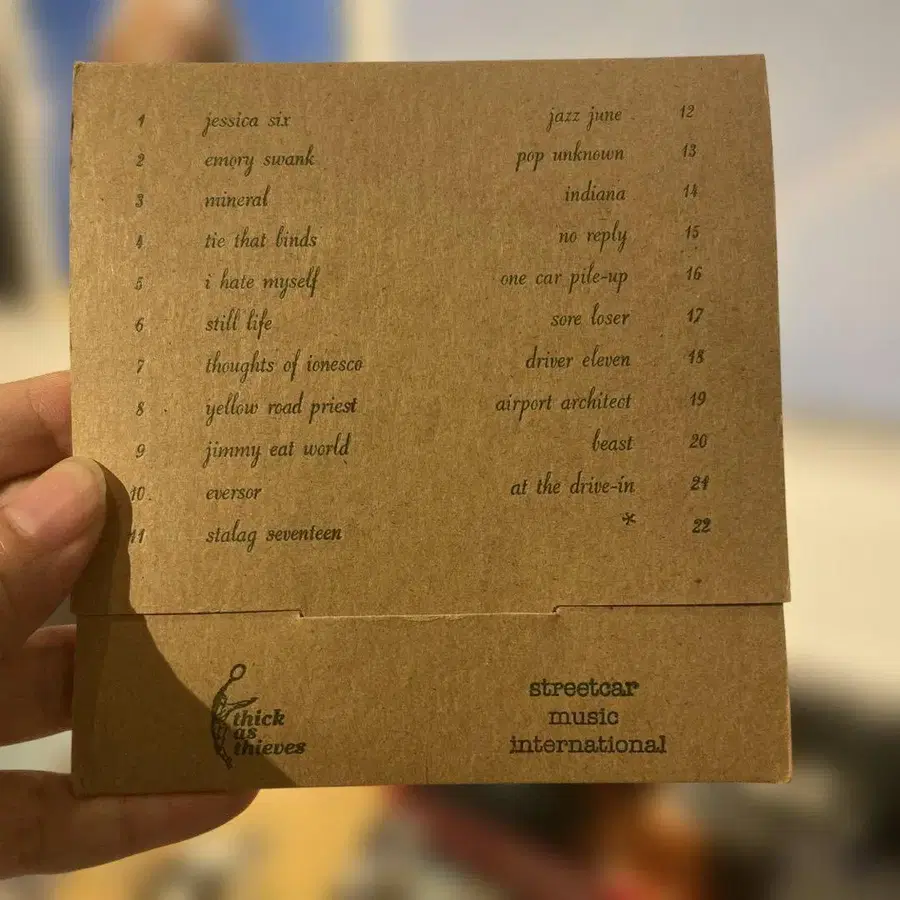 1 jessica six
2 emory swank
3 mineral
4 tie that binds
5 i hate myself
6 still life
7 thoughts of ionesco
8 yellow road priest
9 jimmy eat world
10 eversor
11 stalag seventeen
jazz june 12
pop unknown 13
indiana 14
no reply 15
one car pile-up 16
sore loser 17
driver eleven 18
airport architect 19
beast 20
at the drive-in 21
* 22
thick
as
thieves
streetcar
music
international